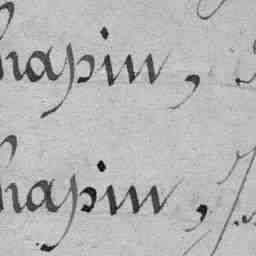 hapin,
hapin, J